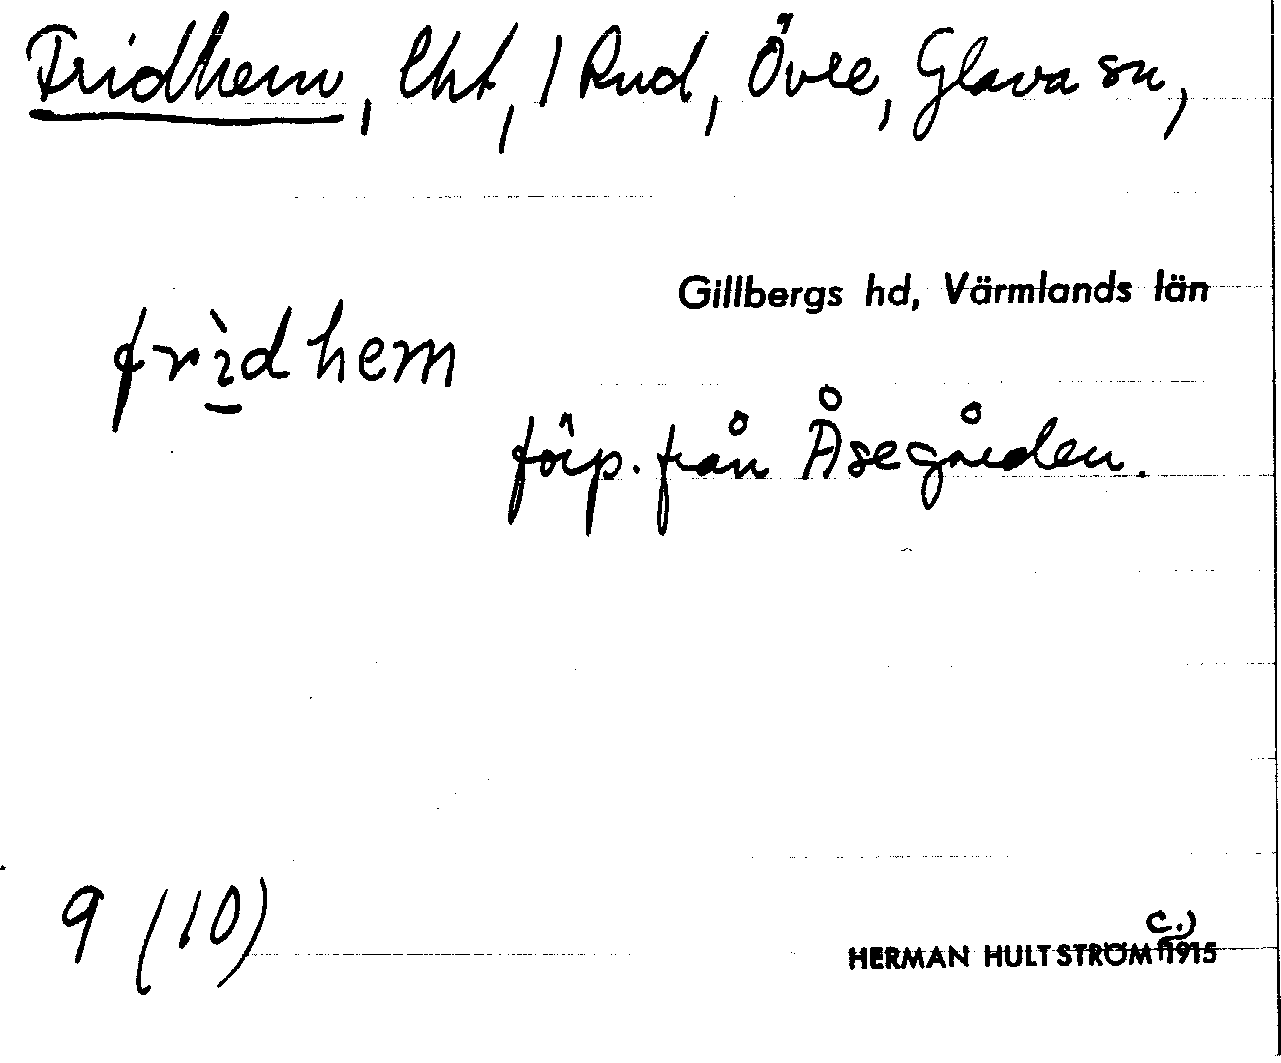 Fridhem, lht, 1 Rud, Övre, Glava sn,
Gillbergs hd, Värmlands län
frìdhem
förp. från Åsegården.
9 (10)
HERMAN HULTSTRÖM c:) 1915